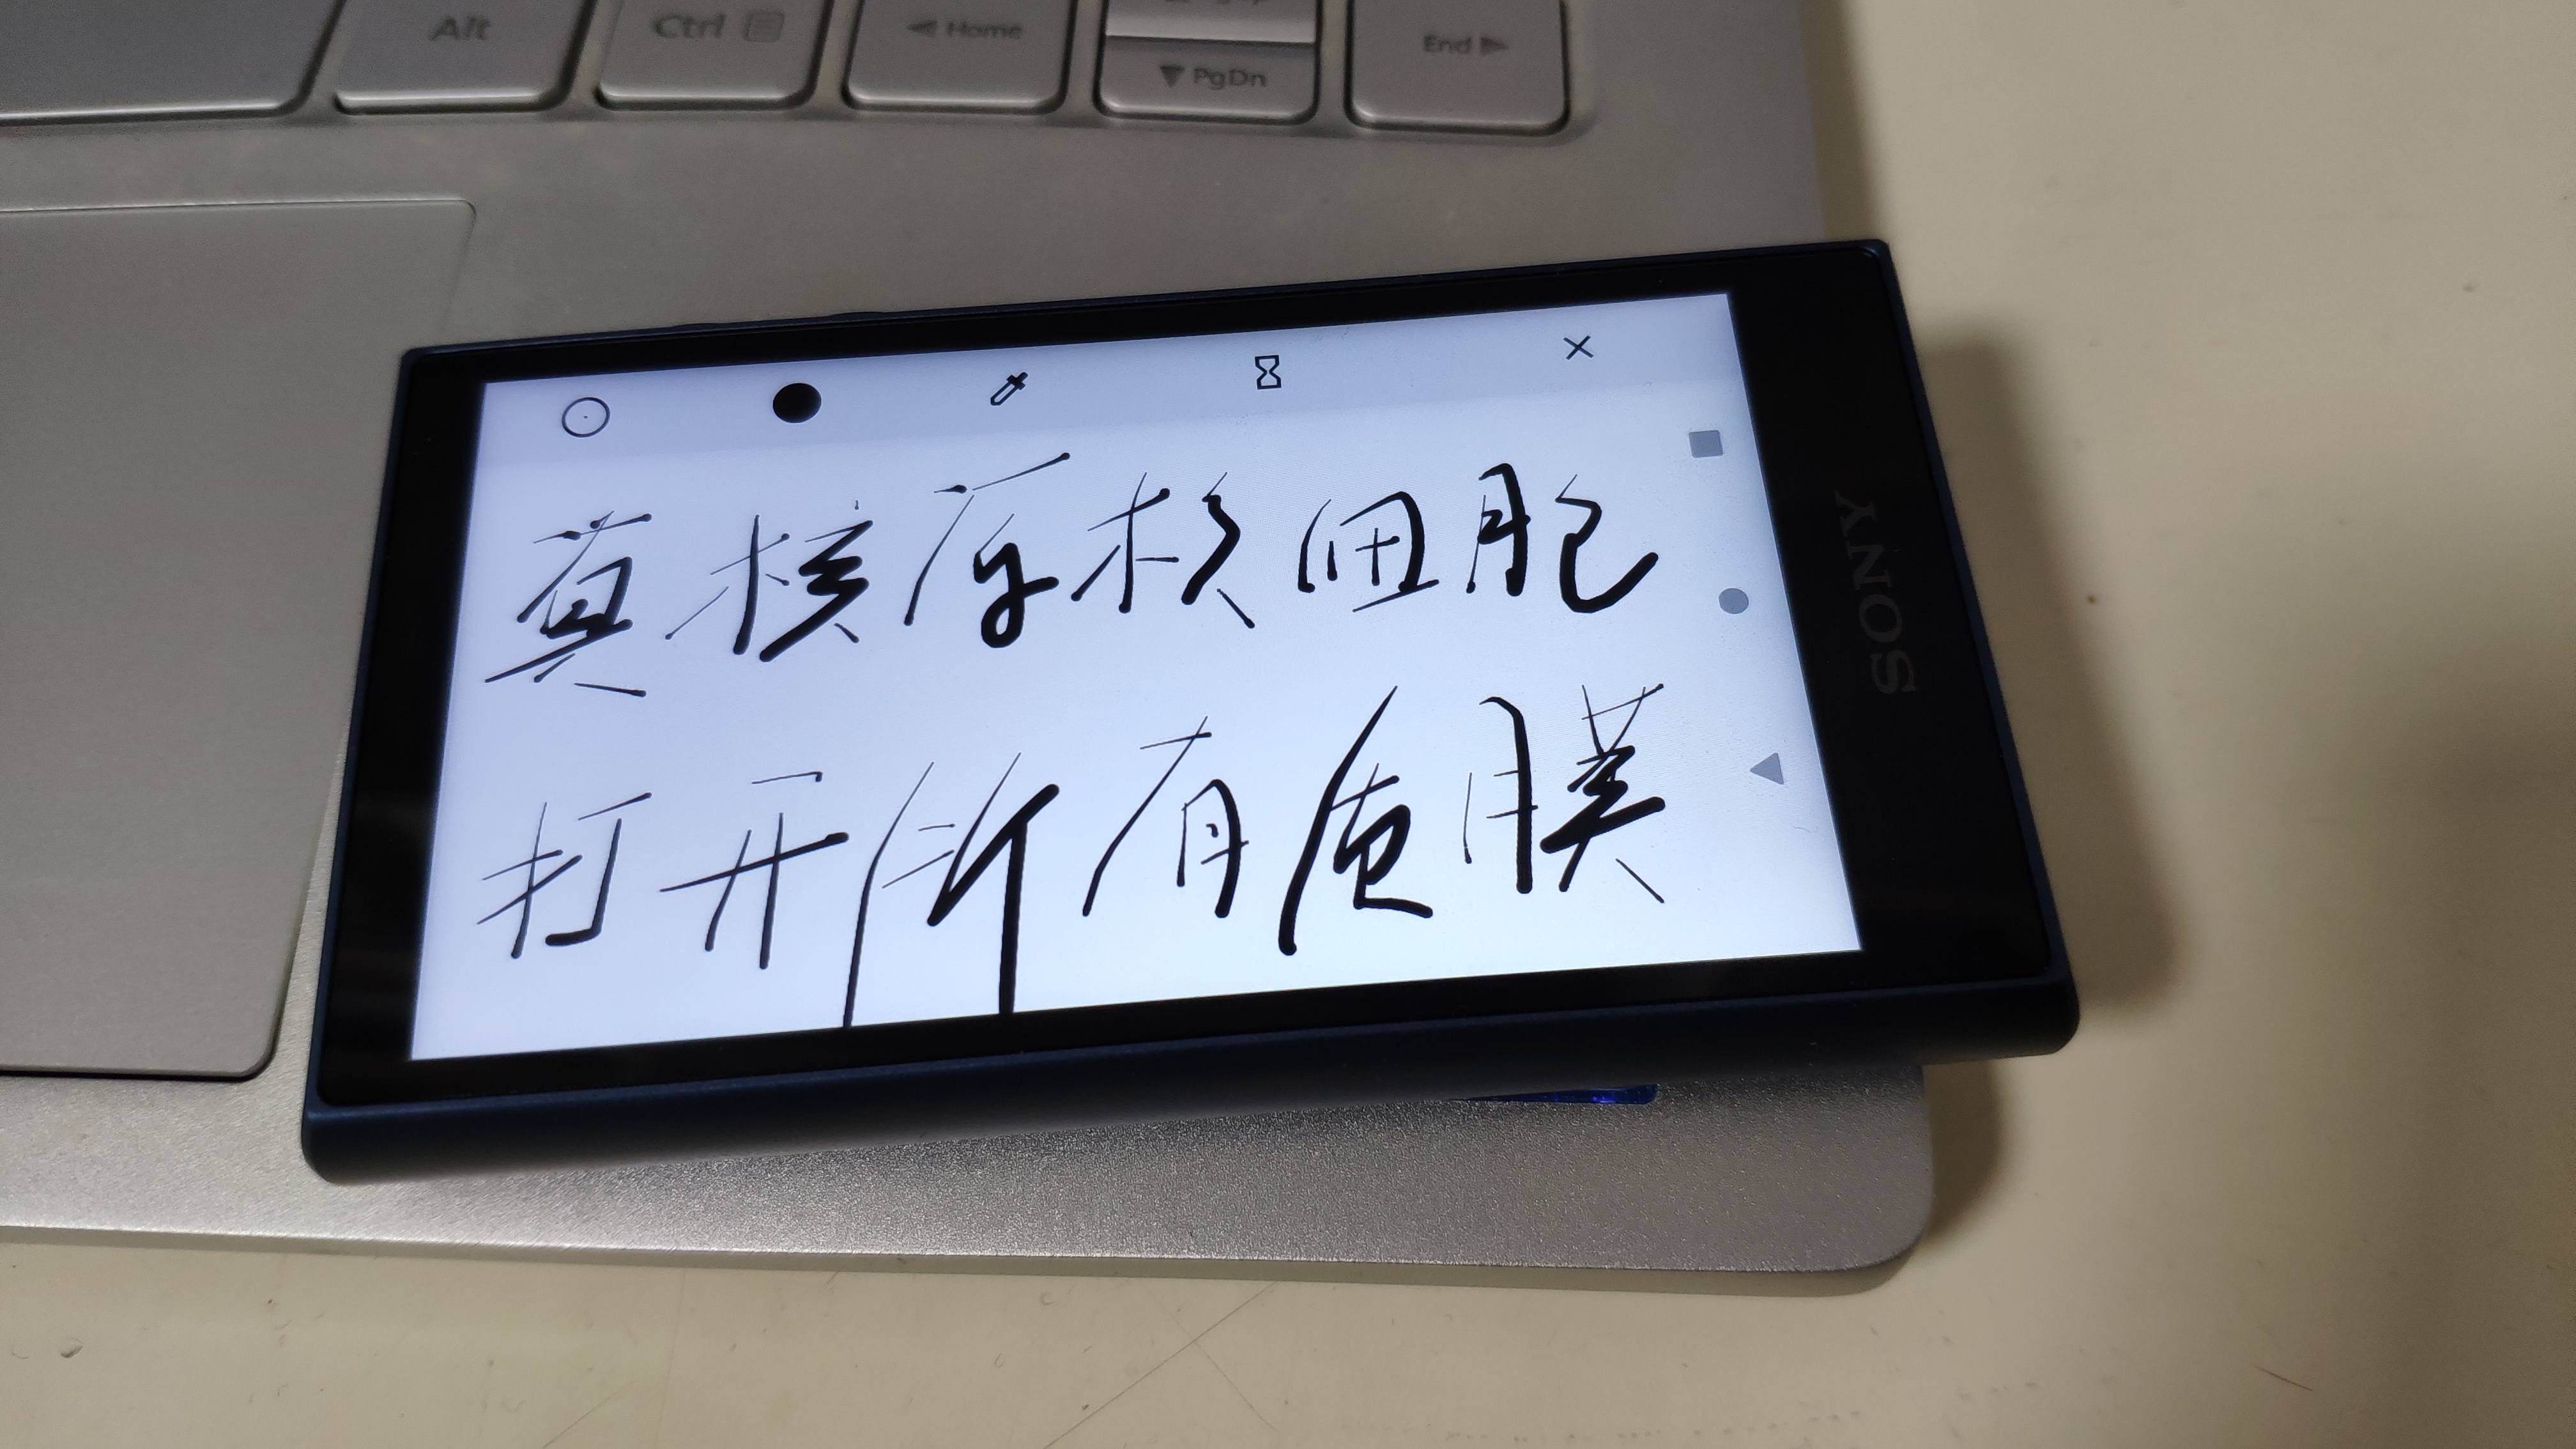 Alt Ctrl Home PgDn End
真核原核细胞
打开所有质膜
SONY